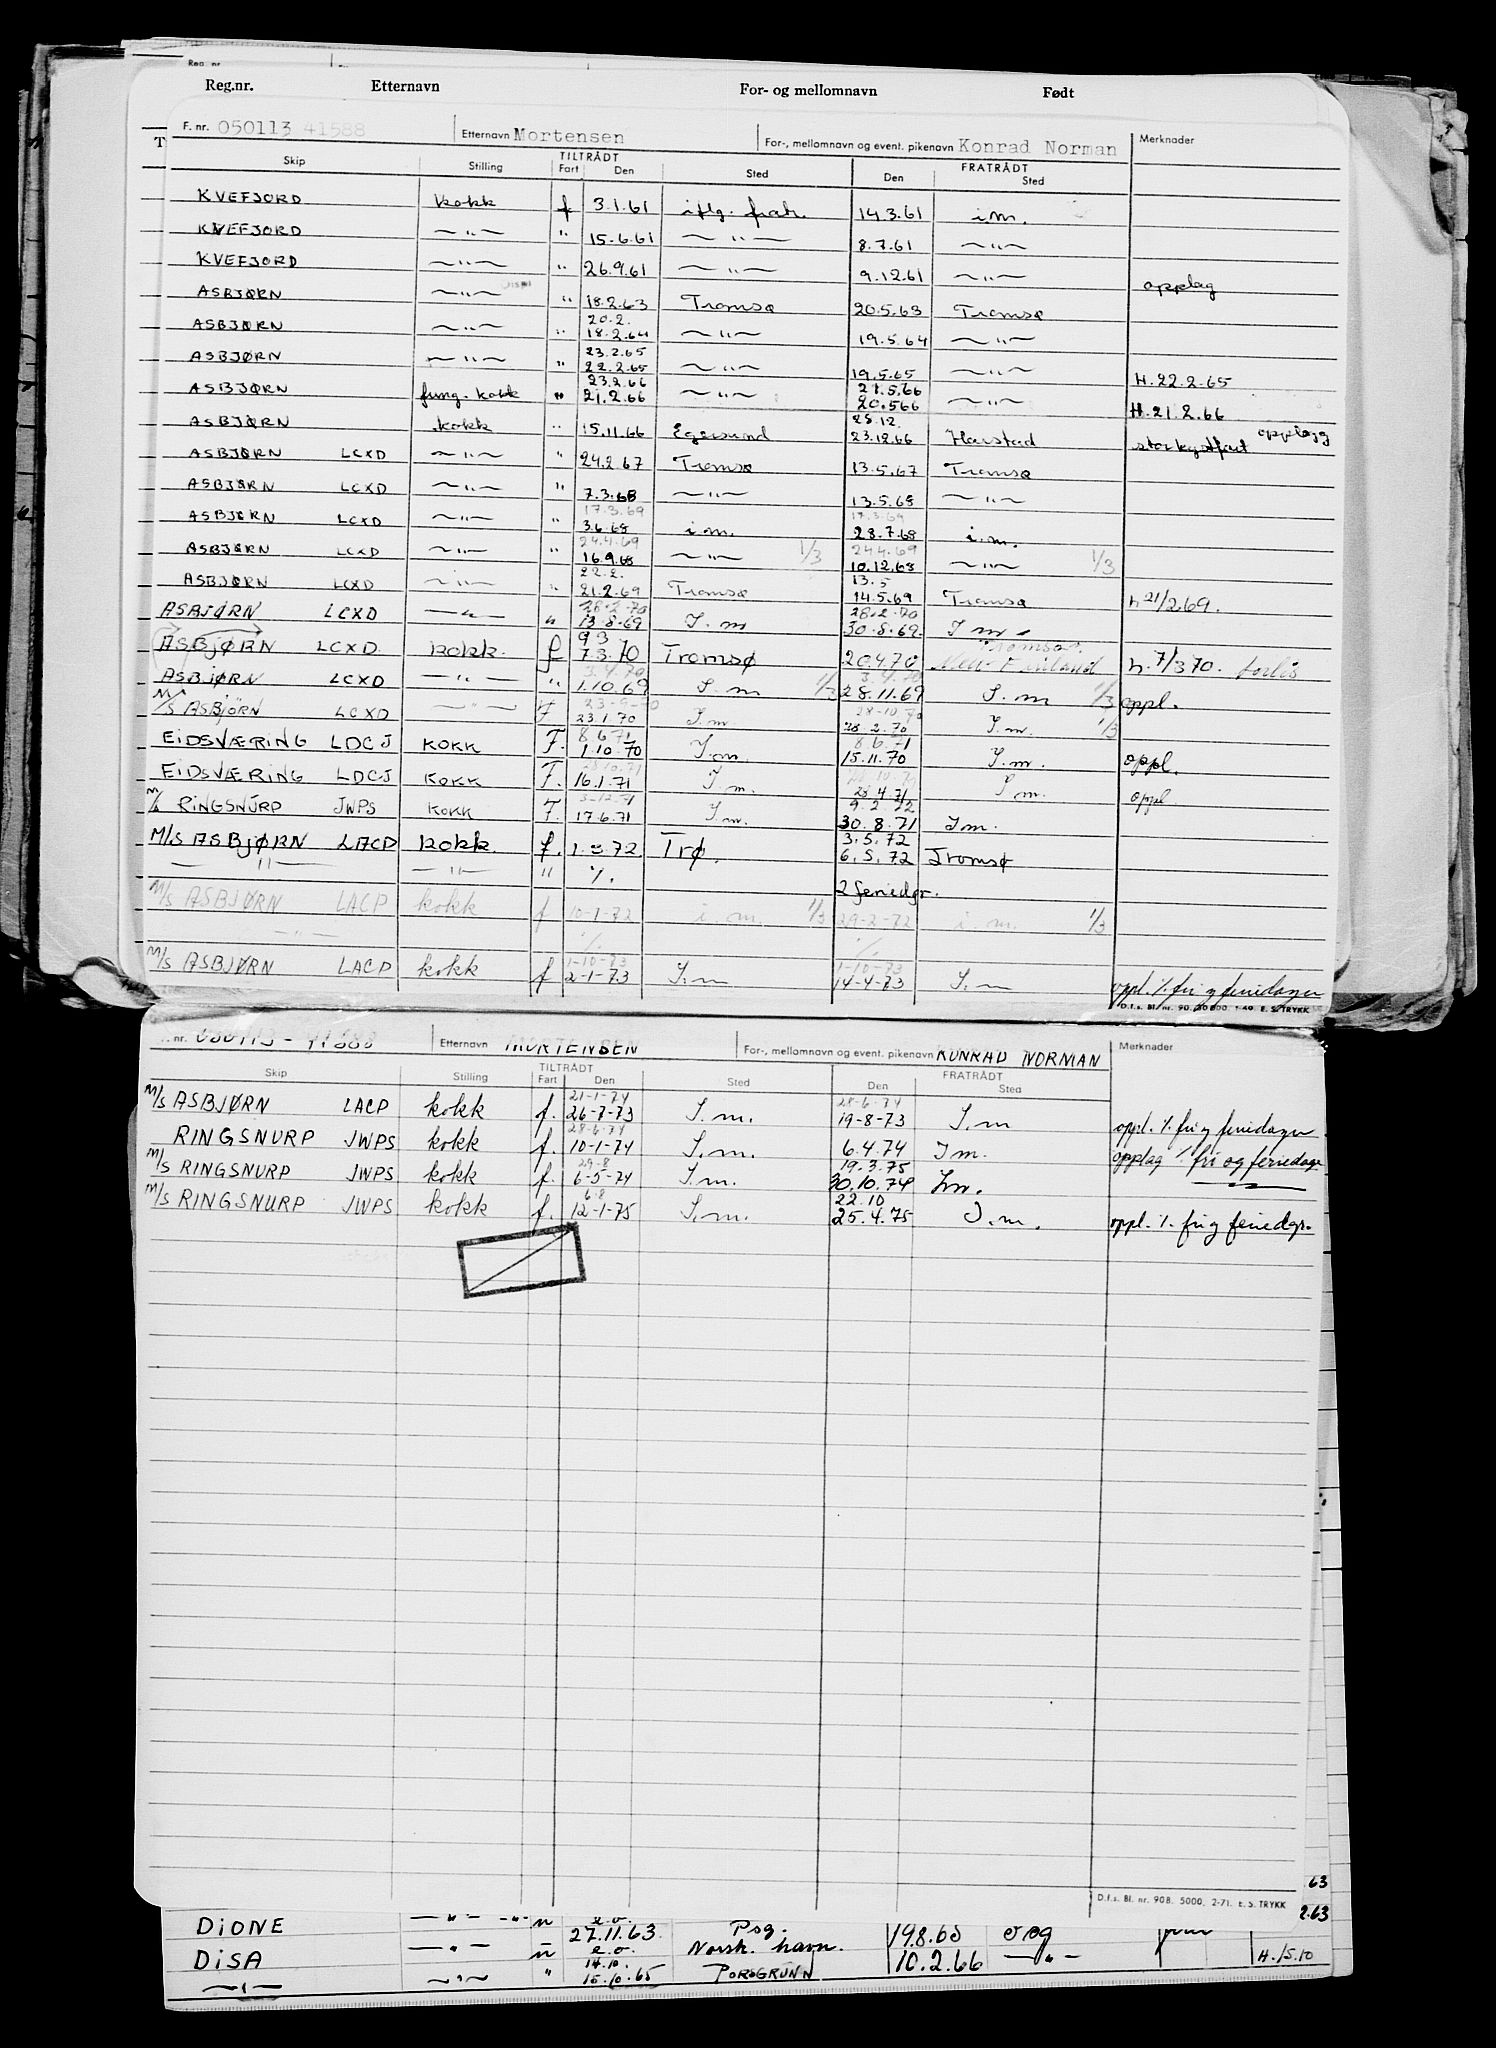 Reg.nr. Etternavn For- og mellomnavn Født
F. nr. 050113 41588 Etternavn Mortensen For-, mellomnavn og event. pikenavn Konrad Norman Merknader
TILTRÅDT FRATRÅDT
Skip Stilling Fart Den Sted Den Sted
KVEFJORD kokk f 3.1.61 iflg. fratr. 14.3.61 i.m.
KVEFJORD —"— " 15.6.61 —"— 8.7.61 —"—
KVEFJORD —"— " 26.9.61 —"— 9.12.61 —"— opplag
ASBJØRN —"— " 18.2.63 Tromsø 20.5.63 Tromsø
20.2.
ASBJØRN —"— " 18.2.64 —"— 19.5.64 —"—
23.2.65
ASBJØRN —"— " 22.2.65 —"— 19.5.65 —"— H.22.2.65
23.2.66 21.5.66
ASBJØRN fung. kokk " 21.2.66 —"— 20.5.66 —"— H.21.2.66
28.12.
ASBJØRN kokk " 15.11.66 Egersund 23.12.66 Harstad storkystfart opplegg
ASBJØRN LCXD —"— " 24.2.67 Tromsø 13.5.67 Tromsø
ASBJØRN LCXD —"— " 7.3.68 —"— 13.5.68 —"—
17.3.69 17.3.69
ASBJØRN LCXD —"— " 3.6.68 i.m. 28.7.68 i.m.
24.4.69 24.4.69
ASBJØRN LCXD —"— " 16.9.68 —"— 1/3 10.12.68 —"— 1/3
22.2. 13.5
ASBJØRN LCXD —"— " 21.2.69 Tromsø 14.5.69 Tromsø h 21/2 69.
28.2.70 28.2.70
ASBJØRN LCXD —"— " 13.8.69 I.m 30.8.69 I m.
9 3 Tromsø
ASBJØRN LCXD kokk. f 7.3.70 Tromsø 20.4.70 h. 7/3 70. forlis
3.4.70 3.4.70
ASBJØRN LCXD —"— " 1.10.69 I.m 1/3 28.11.69 I.m 1/3 oppl.
23-9-70 28-10-70
M/S ASBJÖRN LCXD —"— F 23.1.70 I.m. 28.2.70 I.m. 1/3
8 6 71 8.6.71
EIDSVÆRING LDCJ KOKK F. 1.10.70 I.m. 15.11.70 I.m. oppl.
28.10.71
EIDSVÆRING LDCJ KOKK F. 16.1.71 I m. 28.4.71 I m. oppl
3-12-71 9.2.72
M/S RINGSNURP JWPS KOKK F. 17.6.71 I.m. 30.8.71 I m.
3.5.72
M/S ASBJØRN LACD kokk. f. 1.3.72 Trø. 6.5.72 Tromsø
—"— —"— " ./. 2 feriedgr.
M/S ASBJØRN LACP kokk f 10-1-72 i. m. 1/3 29-2-72 i. m. 1/3
—"— ./. ./.
1-10-73 1-10-73
M/S ASBJØRN LACP kokk f 2-1-73 I.m 14-4-73 I.m oppl. ./. fri og feriedager
D.f.s. Bl. nr. 90. E. S. TRYKK
nr. 050113 - 41588 Etternavn MORTENSEN For-, mellomnavn og event. pikenavn KONRAD NORMAN Merknader
TILTRÅDT FRATRÅDT
Skip Stilling Fart Den Sted Den Sted
21-1-74 28-6-74
M/S ASBJØRN LACP kokk f. 26-7-73 I.m. 19-8-73 I.m oppl. ./. fri og feriedager
28-6-74
RINGSNURP JWPS kokk f. 10-1-74 I.m. 6.4.74 I m. opplag ./. fri og feriedage
29-8 19.3.75
M/S RINGSNURP JWPS kokk f. 6-5-74 I.m. 30.10.74 I m.
6.8 22.10
M/S RINGSNURP JWPS kokk f. 12-1-75 I.m. 25.4.75 I.m. oppl. ./. fri og feriedgr.
D.f.s. Bl. nr. 908. 5000. 2-71. E. S. TRYKK
63
2.63
DIONE —"— —"— u e.o. 27.11.63. Psg. 19.8.65 o og
DISA —"— u e.o. Norsk. havn. 10.2.66 —"—
14.10.
—"— —"— " 15.10.65 PORSGRUNN H.15.10